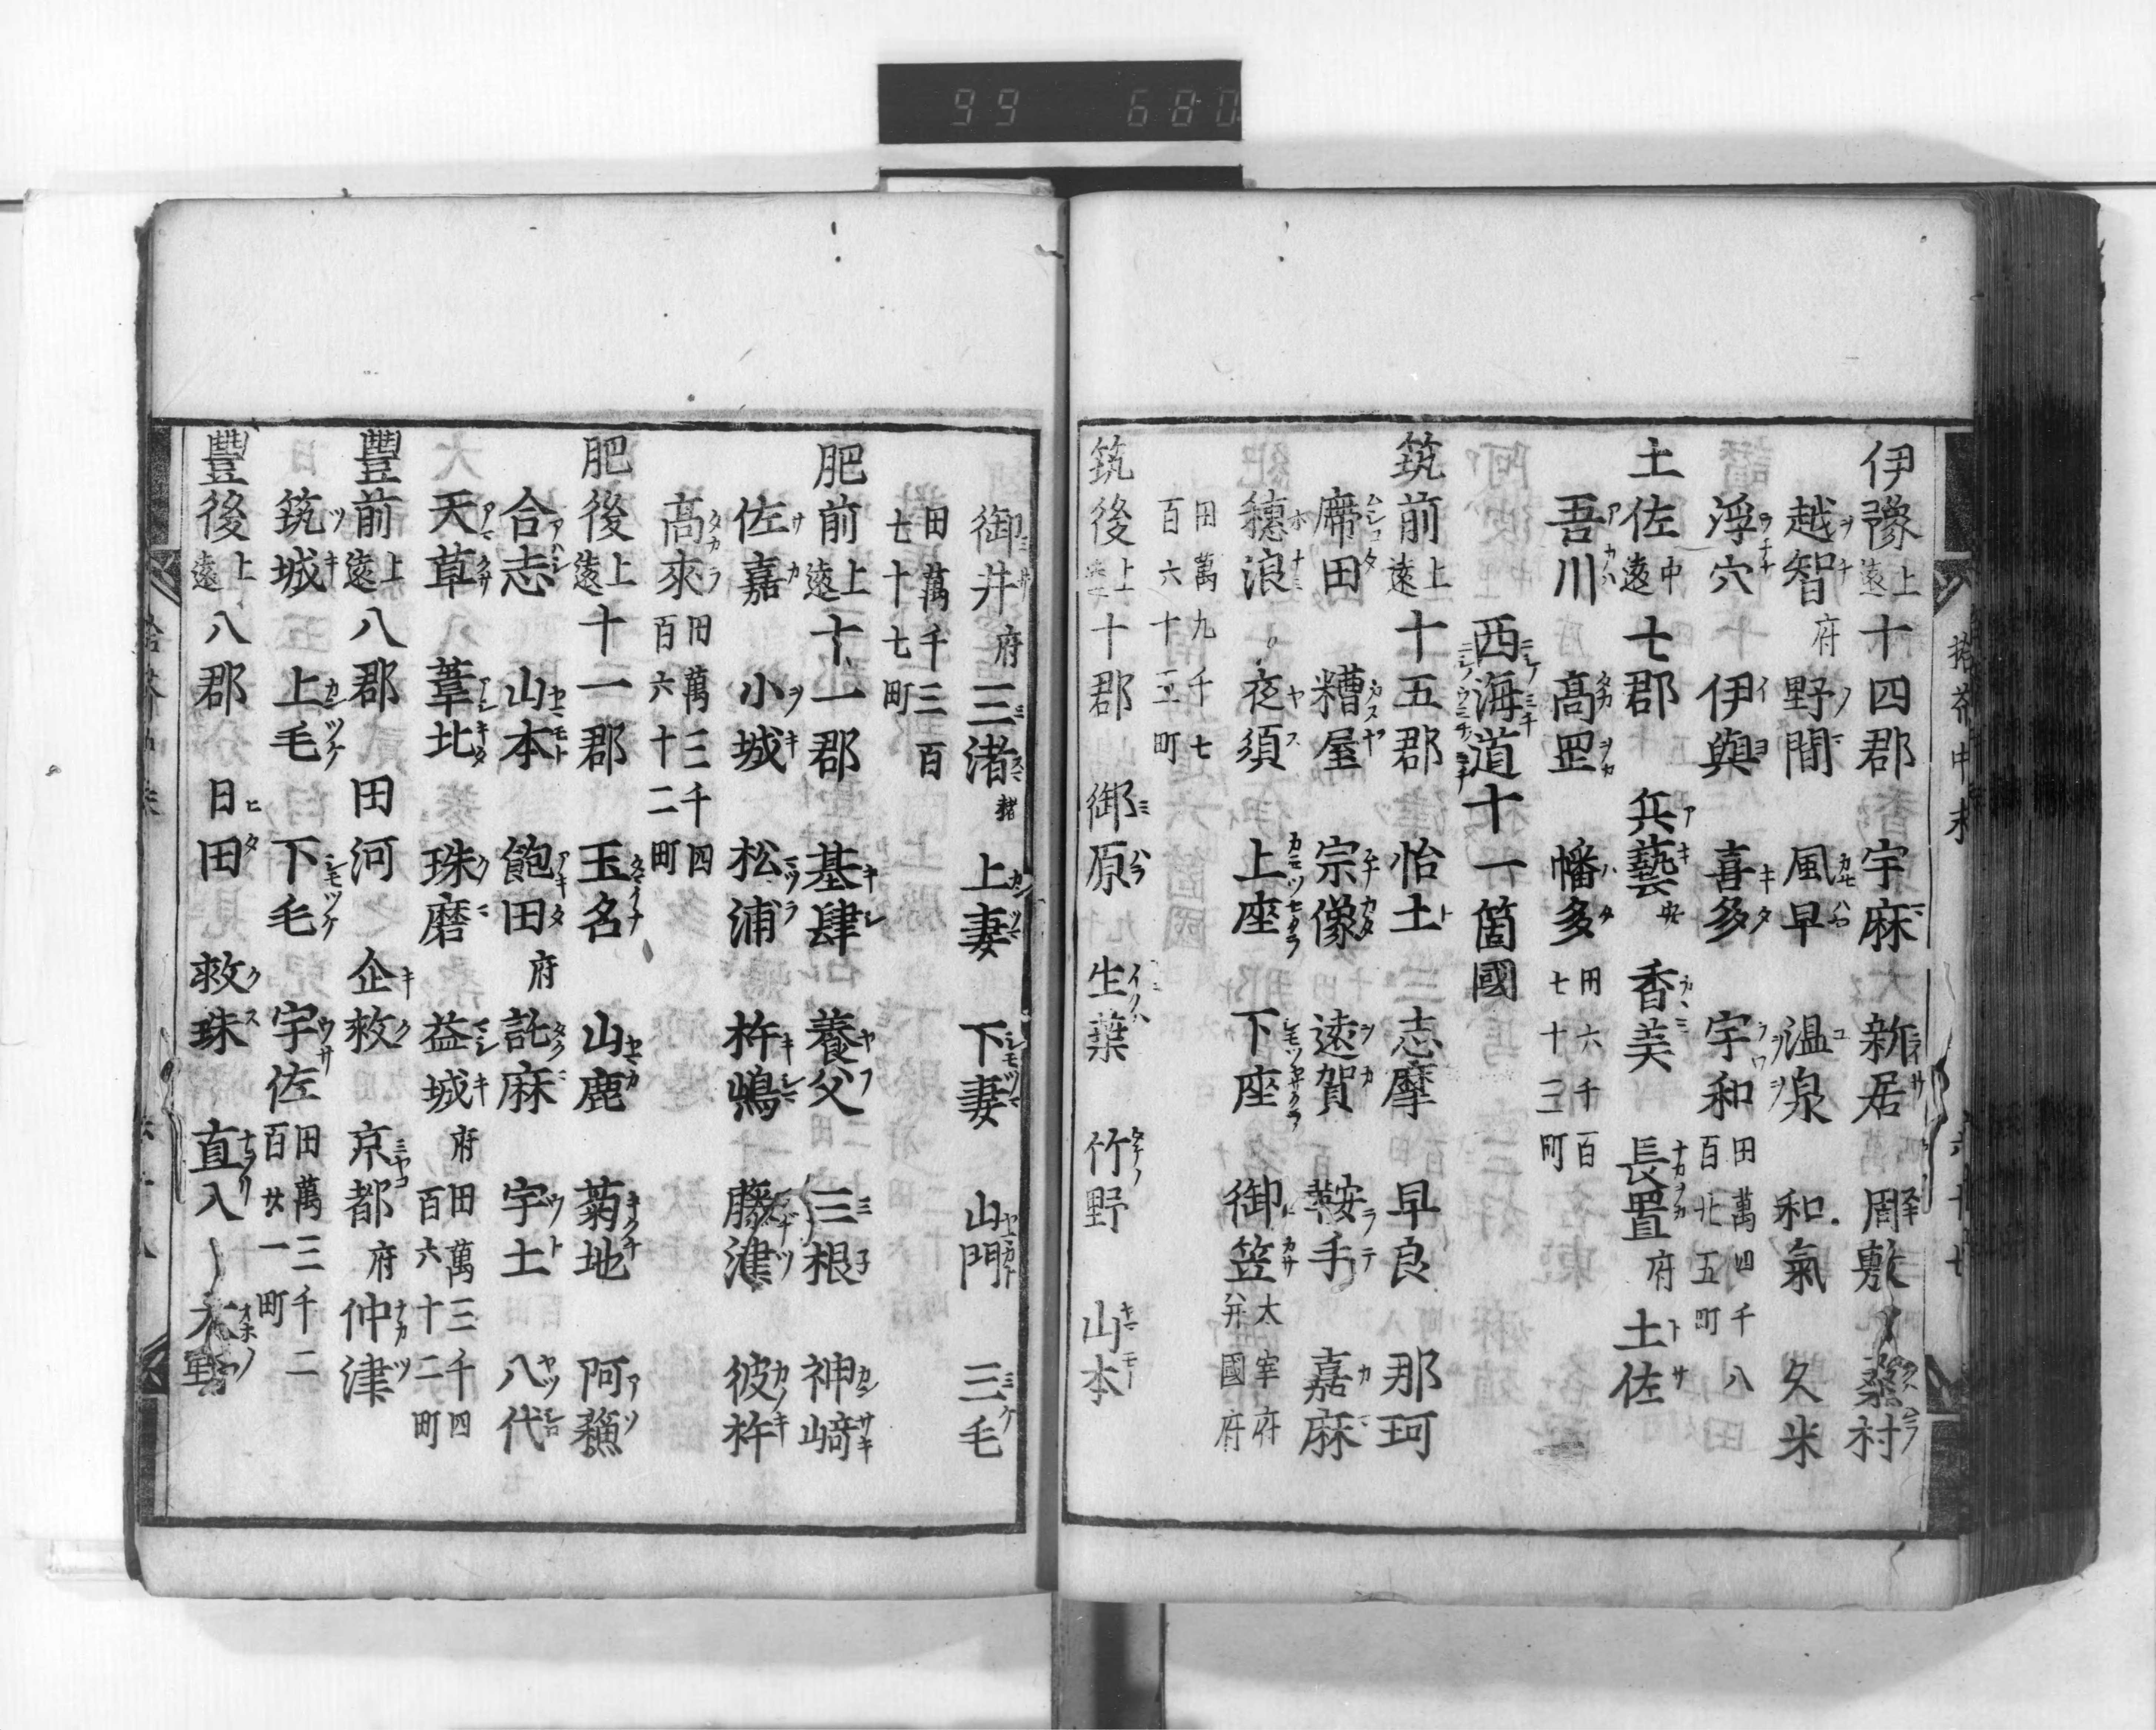 99 680
伊豫 上遠 十四郡 宇麻 新居 周敷 桑村
越智 府 野間 風早 温泉 和氣 久米
浮穴 伊與 喜多 宇和 田萬四千八百 五町
土佐 中遠 七郡 兵藝 安 香美 長置 府 土佐
吾川 髙罡 幡多 田六千百七十三町
西海道十一箇國
筑前 上遠 十五郡 怡土 志摩 早良 那珂
席田 糟屋 宗像 遠賀 鞍手 嘉麻
穗浪 夜須 上座 下座 御笠 大宰府并國府
田萬九千七百六十五町
筑後 上遠 十郡 御原 生葉 竹野 山本
御井 府 三渚 猪 上妻 下妻 山門 三毛
田萬千三百七十七町
肥前 上遠 十一郡 基肆 養父 三根 神﨑
佐嘉 小城 松浦 杵嶋 藤津 彼杵
髙來 田萬三千四百六十二町
肥後 上遠 十二郡 玉名 山鹿 菊地 阿蘓
合志 山本 飽田 府 託麻 宇土 八代
天草 葦北 珠磨 益城 府 田萬三千四百六十二町
豐前 上遠 八郡 田河 企救 京都 府 仲津
筑城 上毛 下毛 宇佐 田萬三千二百廿一町
豐後 上遠 八郡 日田 救珠 直入 大野